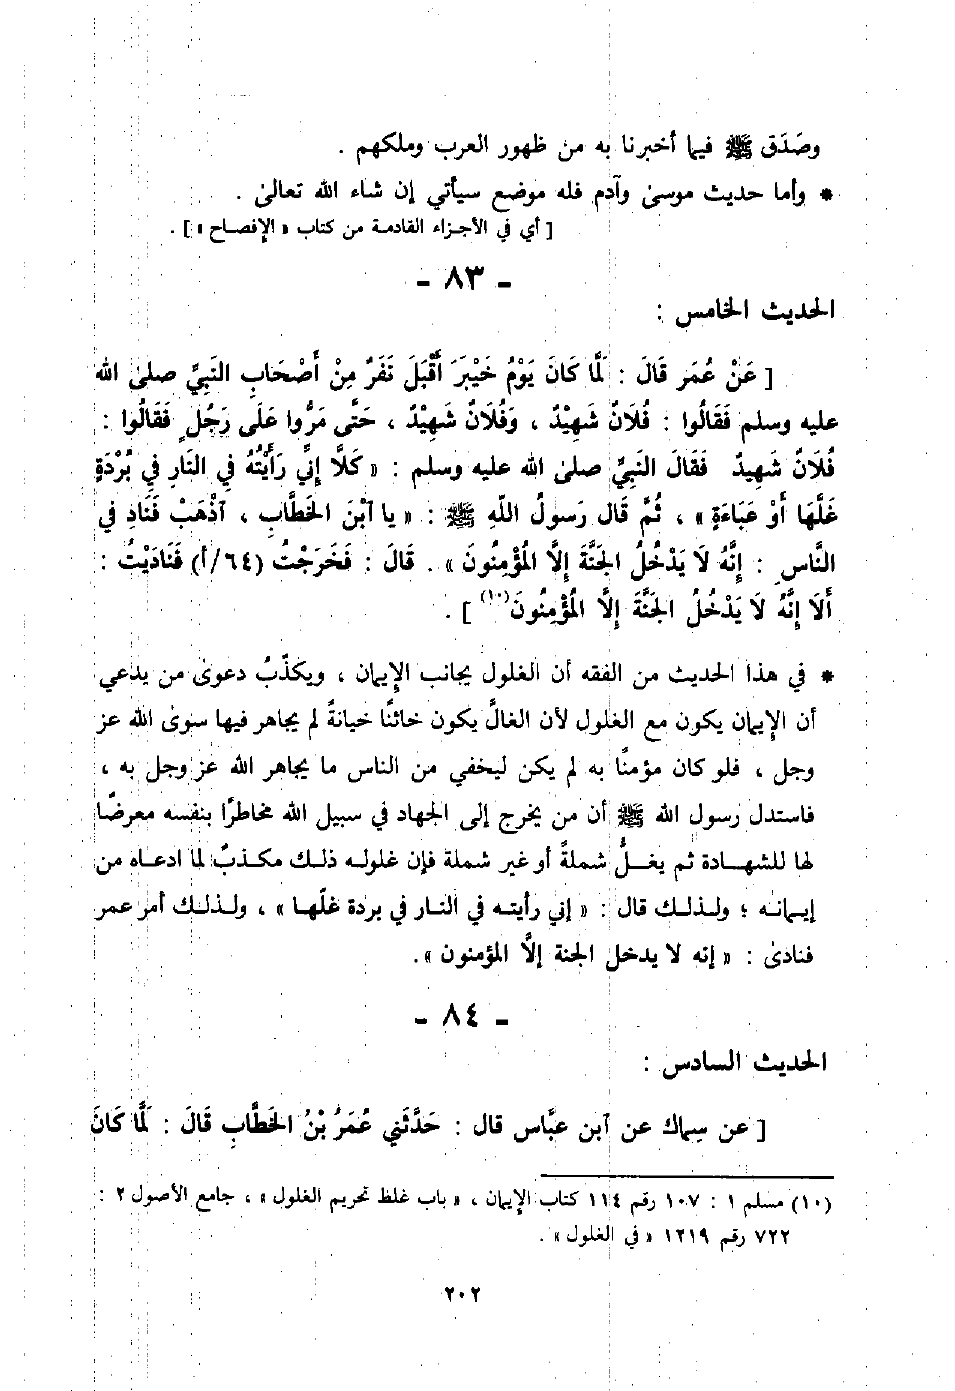 وصَدَق ﷺ فيما أخبرنا به من ظهور العرب وملكهم .
* وأما حديث موسىٰ وآدم فله موضع سيأتي إن شاء الله تعالىٰ .
[ أي في الأجزاء القادمة من كتاب « الإفصاح » ] .
- ٨٣ -
الحديث الخامس :
[ عَنْ عُمَر قَالَ : لَمَّا كَانَ يَوْمُ خَيْبَرَ أَقْبَلَ نَفَرٌ مِنْ أَصْحَابِ النَبيِّ صلىٰ الله
عليه وسلم فَقَالُوا : فُلَانٌ شَهِيْدٌ ، وَفُلَانٌ شَهِيْدٌ ، حَتَّى مَرُّوا عَلَى رَجُلٍ فَقَالُوا :
فُلَانٌ شَهِيدٌ فَقَالَ النَبيِّ صلىٰ الله عليه وسلم : « كَلَّا إِنِّي رَأَيْتُهُ فِي النَارِ فِي بُرْدَةٍ
غَلَّهَا أَوْ عَبَاءَةٍ » ، ثُمَّ قَال رَسولُ اللّهِ ﷺ : « يا ٱبْنَ الخَطَّابِ ، ٱذْهَبْ فَنَادِ في
النَّاسِ : إِنَّهُ لَا يَدْخُلُ الجَنَّةَ إِلَّا المُؤْمِنُونَ » . قَالَ : فَخَرَجْتُ (٦٤/أ) فَنَادَيْتُ :
أَلَا إِنَّهُ لَا يَدْخُلُ الجَنَّةَ إِلَّا المُؤْمِنُونَ(١٠) ] .
* في هذا الحديث من الفقه أن الغلول يجانب الإيمان ، ويكذّبُ دعوىٰ من يدعي
أن الإيمان يكون مع الغلول لأن الغالَّ يكون خائنًا خيانةً لم يجاهر فيها سوىٰ الله عز
وجل ، فلو كان مؤمنًا به لم يكن ليخفي من الناس ما يجاهر الله عز وجل به ،
فاستدل رسول الله ﷺ أن من يخرج إلى الجهاد في سبيل الله مخاطرًا بنفسه معرضًا
لها للشهادة ثم يغلُّ شملةً أو غير شملة فإن غلوله ذلك مكذبٌ لما ادعاه من
إيمانه ؛ ولذلك قال : « إني رأيته في النار في بردة غلّها » ، ولذلك أمر عمر
فنادىٰ : « إنه لا يدخل الجنة إلَّا المؤمنون ».
- ٨٤ -
الحديث السادس :
[ عن سِماك عن ٱبن عبَّاس قال : حَدَّثَني عُمَرُ بْنُ الخَطَّابِ قَالَ : لَمَّا كَانَ
(١٠) مسلم ١ : ١٠٧ رقم ١١٤ كتاب الإيمان ، « باب غلظ تحريم الغلول » ، جامع الأصول ٢ :
٧٢٢ رقم ١٢١٩ « في الغلول » .
٢٠٢